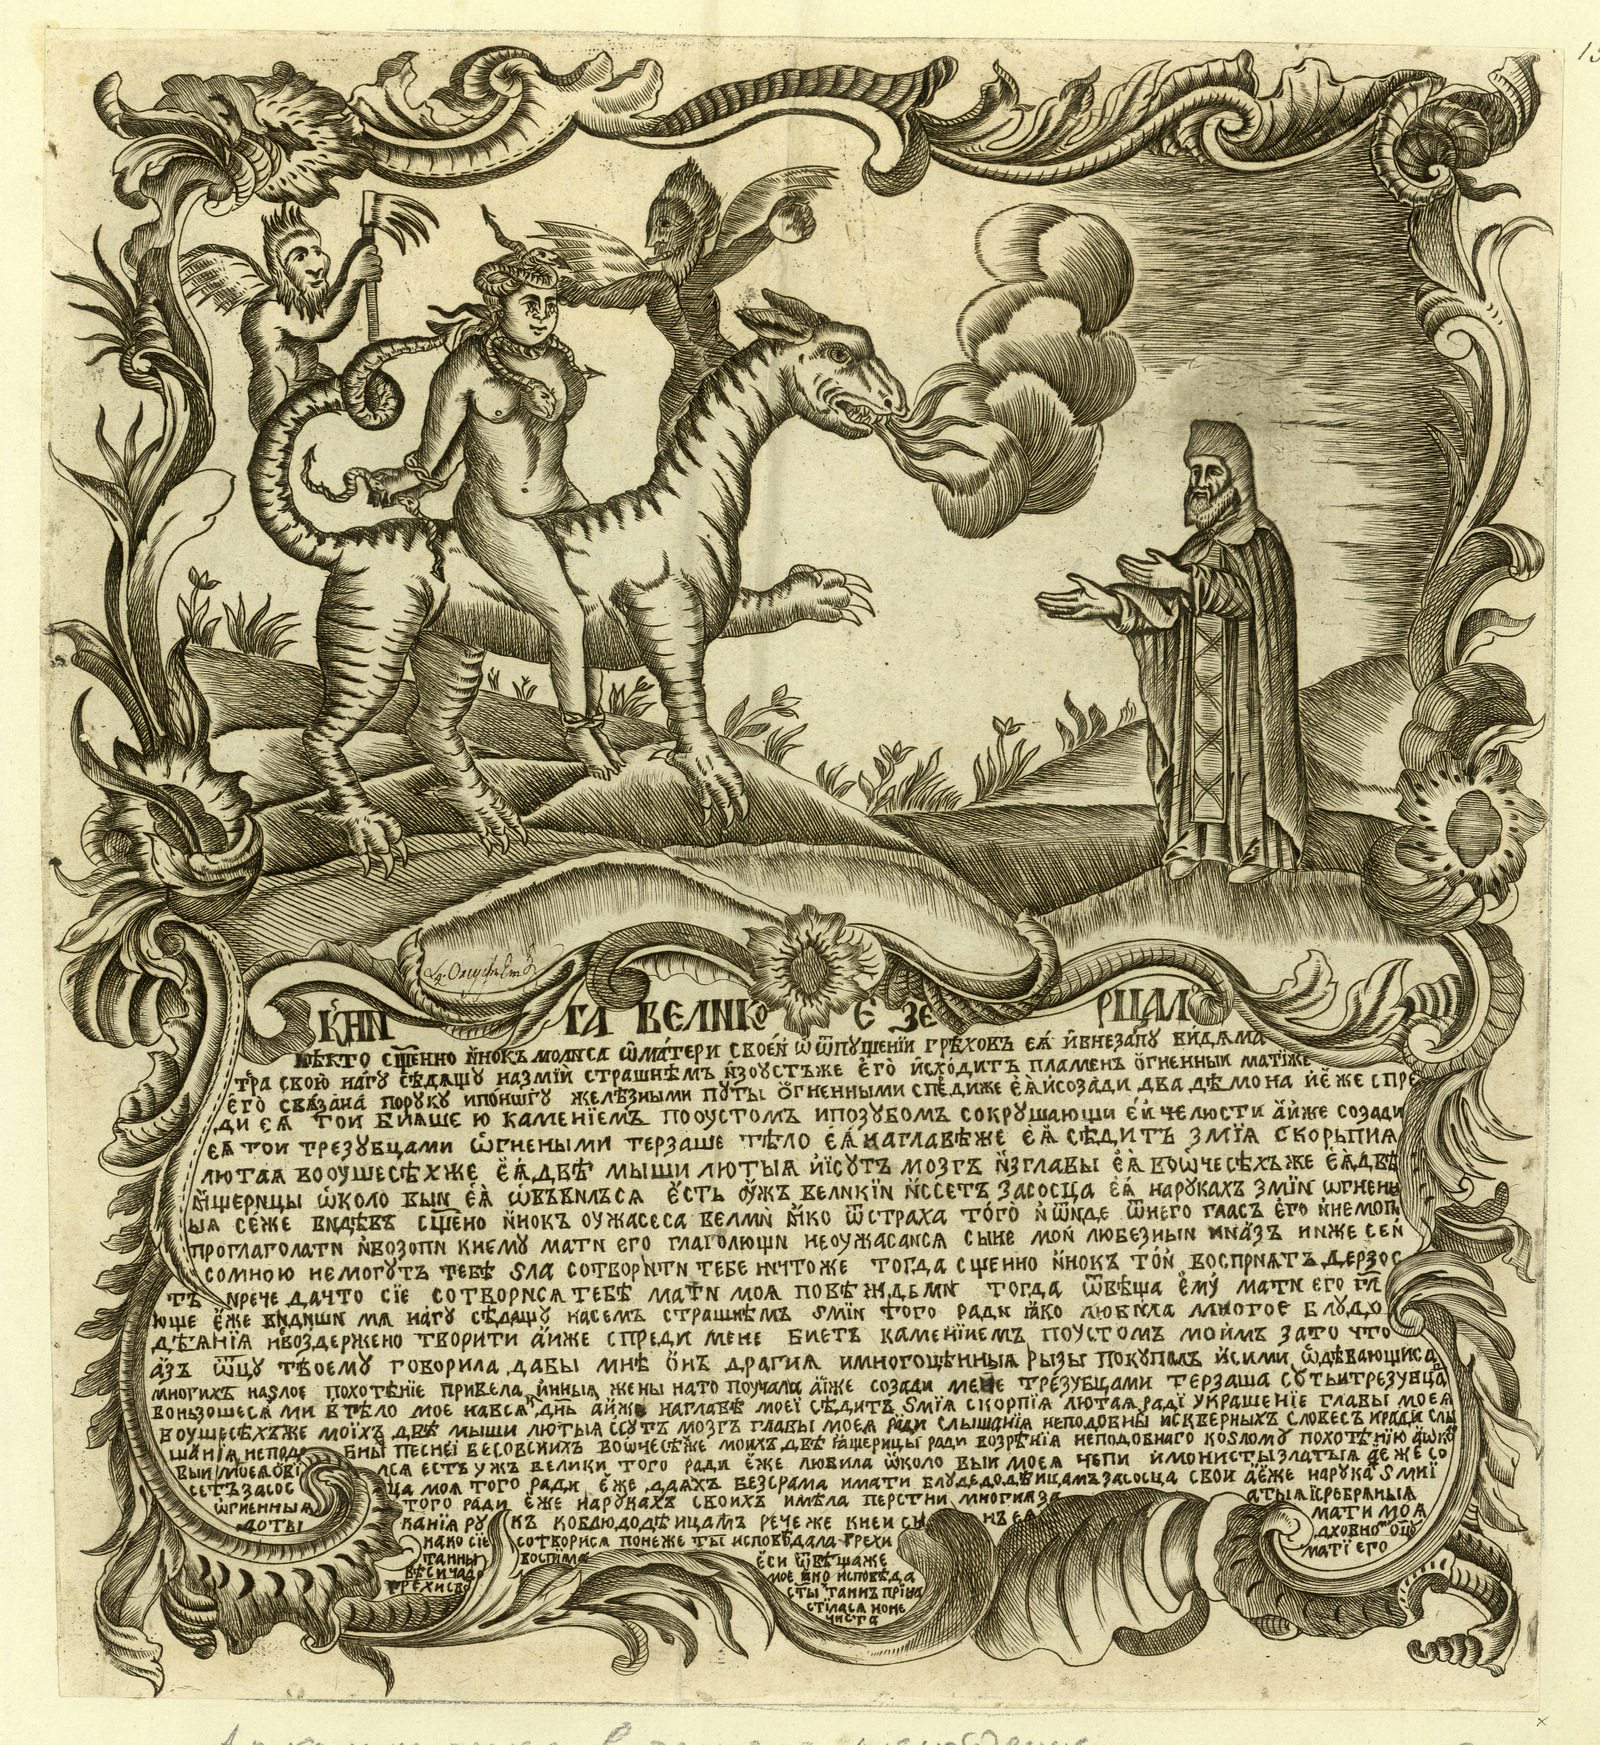 КНИГА ВЕЛИКОЕ ЗЕРЦАЛО
НѢКТО СЩЕННО ИНОКЪ МОЛИСА Ѡ МАТЕРИ СВОЕИ Ѡ ѾПУЩЕНІИ ГРѢХОВЪ ЕѦ И ВНЕЗАПУ ВИДЯ МА
ТРА СВОЮ НАГУ СѢДЯЩУ НА ЗМІИ СТРАШНѢМЪ ИЗО УСТЪ ЖЕ ЕГО ИСХОДИТЪ ПЛАМЕНЬ ОГНЕННЫИ МАТІ ЖЕ
ЕГО СВЯЗАНА ПО РУКУ И ПО НѠГУ ЖЕЛѢЗНЫМИ ПУТЫ ОГНЕННЫМИ СПЕДИ ЖЕ ЕЯ И СОЗАДИ ДВА ДЕМОНА И ЕЖЕ СПРЕ
ДИ ЕЯ ТОИ БИЯШЕ Ю КАМЕНІЕМЪ ПО ОУСТОМЪ И ПО ЗУБОМЪ СОКРУШАЮЩИ ЕИ ЧЕЛЮСТИ А ИЖЕ СОЗАДИ
ЕЯ ТОИ ТРЕЗУБЦАМИ ѠГНЕНЫМИ ТЕРЗАШЕ ТѢЛО ЕЯ НА ГЛАВѢ ЖЕ ЕЯ СѢДИТЪ ЗМІЯ СКОРЬПИЯ
ЛЮТАЯ ВО ОУШЕСѢХ ЖЕ ЕЯ ДВѢ МЫШИ ЛЮТЫЯ ИІСУТЪ МОЗГЪ ИЗ ГЛАВЫ ЕЯ ВО ѠЧЕСѢХЪ ЖЕ ЕЯ ДВѢ
ЯЩЕРИЦЫ ѠКОЛО ВЫИ ЕЯ ѠБЪВИЛЪСЯ ЕСТЬ УЖЪ ВЕЛИКІИ И ССЕТЪ ЗА СОСЦА ЕЯ НА РУКАХЪ ЗМІИ ѠГНЕНЫ
ЫЯ СЕ ЖЕ ВИДѢВЪ СЩЕНО ИНОКЪ ОУЖАСЕСА ВЕЛМИ ЯКО Ѿ СТРАХА ТОГО И ѾИДЕ Ѿ НЕГО ГЛАСЪ ЕГО И НЕ МОГИ
ПРОГЛАГОЛАТИ И ВОЗОПИ К НЕМУ МАТИ ЕГО ГЛАГОЛЮЩИ НЕ ОУЖАСАИСЯ СЫНЕ МОИ ЛЮБЕЗНЫИ ИЖЕ СЕИ
СО МНОЮ НЕ МОГУТЪ ТЕБѢ ЅЛА СОТВОРИТИ ТЕБЕ НИЧТОЖЕ ТОГДА СЩЕННО ИНОКЪ ТОИ ВОСПРИЯТЪ ДЕРЗОС
ТЬ И РЕЧЕ ДА ЧТО СІЕ СОТВОРИСЯ ТЕБѢ МАТИ МОЯ ПОВѢЖДЬ МИ ТОГДА ѾВѢЩА ЕМУ МАТИ ЕГО ГЛ
ЮЩЕ ЕЖЕ ВИДИШИ МЯ НАГУ СѢДЯЩУ НА СЕМЪ СТРАШНѢМЪ ЅМІИ ТОГО РАДИ ЯКО ЛЮБИЛА МНОГОЕ БЛУДО
ДѢЯНІЯ НЕВОЗДЕРЖЕНО ТВОРИТИ А ИЖЕ СПРЕДИ МЕНЕ БИЕТЪ КАМЕНІИЕМЪ ПО УСТОМЪ МОИМЪ ЗА ТО ЧТО
АЗЪ ѾЦУ ТВОЕМУ ГОВОРИЛА ДАБЫ МНѢ ОНЪ ДРАГИЯ И МНОГОЦѢННЫЯ РЫЗЫ ПОКУПАЛЪ И СИМИ ѠДѢВАЮЩИСА
МНОГИХЪ НА ЅЛОЕ ПОХОТѢНІЕ ПРИВЕЛА ИНЫЯ ЖЕНЫ НА ТО ПОУЧАЛА А ІЖЕ СОЗАДИ МЕНЕ ТРЕЗУБЦАМИ ТЕРЗАША СУТЬ И ТРЕЗУБЦА
ВОНЬЗОШЕСЯ МИ В ТѢЛО МОЕ НА ВСЯ ДНЬ А ИЖЕ НА ГЛАВѢ МОЕІ СѢДИТЪ ЅМІЯ СКОРПІЯ ЛЮТАЯ РАДІ УКРАШЕНІЕ ГЛАВЫ МОЕЯ
ВО УШЕСѢХЪ ЖЕ МОІХЪ ДВѢ МЫШИ ЛЮТЫЯ ССУТЪ МОЗГЪ ГЛАВЫ МОЕЯ РАДИ СЛЫШАНІЯ НЕПОДОБНЫ И СКВЕРНЫХЪ СЛОВЕСЪ И РАДИ СЛЫ
ШАНІЯ НЕПОДОБНЫ ПЕСНЕІ БЕСОВСКИХЪ ВО ѠЧЕСѢ ЖЕ МОИХЪ ДВѢ ЯЩЕРИЦЫ РАДИ ВОЗРѢНІЯ НЕПОДОБНАГО КО ЅЛОМУ ПОХОТѢНІЮ А ѠКО
ВЫИ МОЕЯ ОВІЛСЯ ЕСТЬ УЖЪ ВЕЛИКИ ТОГО РАДИ ЕЖЕ ЛЮБИЛА ѠКОЛО ВЫИ МОЕЯ ЧЕПИ И МОНИСТЫ ЗЛАТЫЯ А ЕЖЕ СО
СЕТЪ ЗА СОСЦА МОЯ ТОГО РАДИ ЕЖЕ ДАЯХЪ БЕЗ СРАМА ИМАТИ БЛУДЕДОДѢИЦАМЪ ЗА СОСЦА СВОИ А ЕЖЕ НА РУКА ЅМИІ
ѠГНЕННЫЯ ТОГО РАДИ ЕЖЕ НА РУКАХЪ СВОИХЪ ИМѢЛА ПЕРСТНИ МНОГИЯ ЗЛАТЫЯ І СРЕБРЯНЫЯ
КАНІЯ РУКЪ КО БЛЮДОДѢИЦАМЪ РЕЧЕ ЖЕ К НЕИ СЫНЪ ЕЯ МАТИ МОЯ
КАКО СІЕ СОТВОРИСЯ ПОНЕЖЕ ТЫ ИСПОВѢДАЛА ГРЕХИ ДХОВНОМ ОЦУ
ТАИНЫ ЕСИ ѾВѢЩА ЖЕ МАТІ ЕГО
ВѢСИ ЧАДО МОЕ ИСПОВѢДА
ГРЕХИ СВО СТЫ ТАИНЪ ПРІЧА
СТІЛАСЯ НО НЕ
ЧИСТА